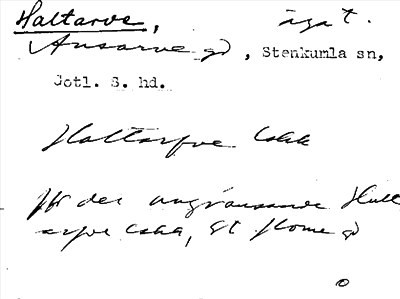 Haltarve, ägat.
Ansarve gd, Stenkumla sn,
Gotl. S. hd.
Haltarfve
Jfr det angränsande Halt
arfve, St Home gd